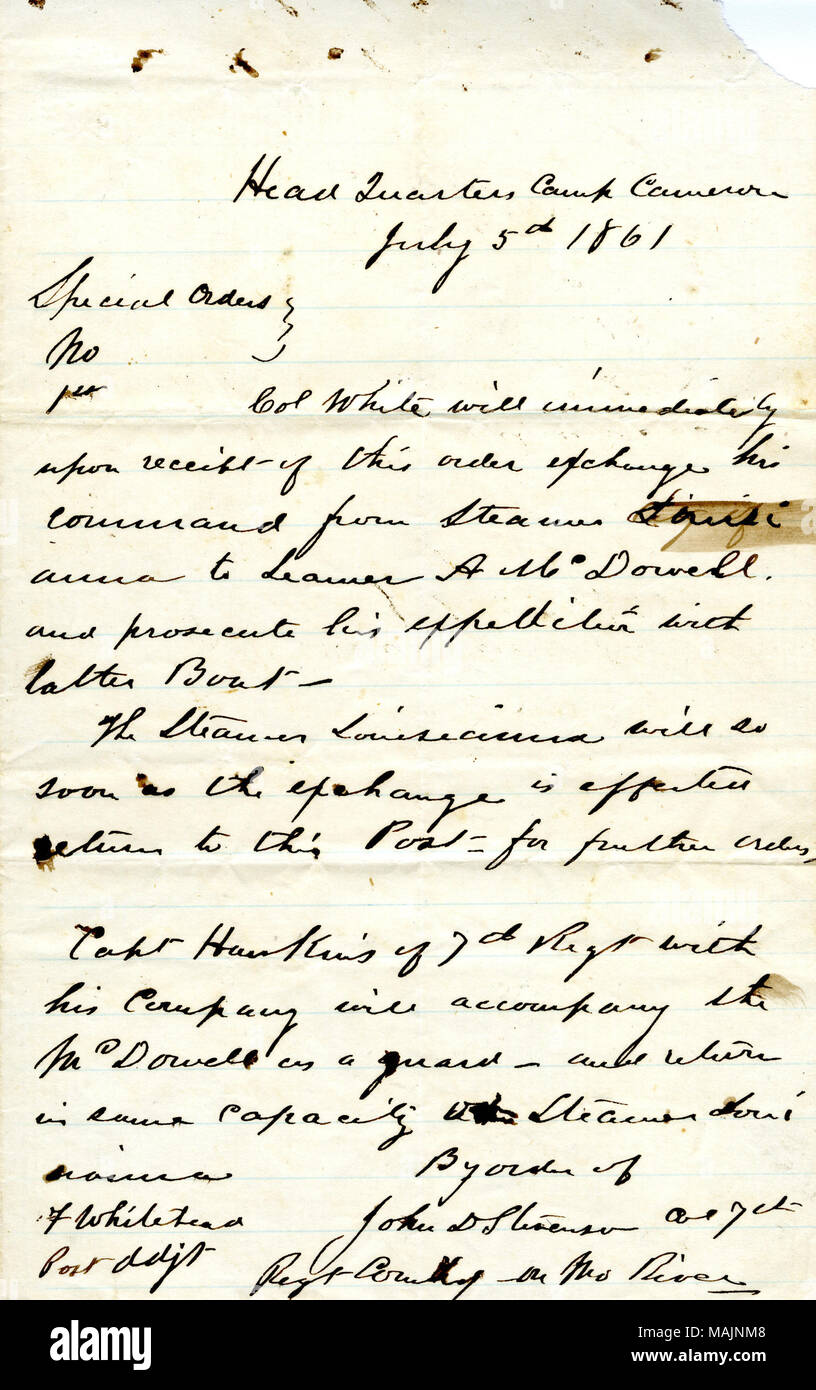 Head Quarters Camp Cameron
July 5th 1861
Special Orders
No
1st Col White will immediately
upon receipt of this order exchange his
command from Steamer Louisi
anna to Steamer A McDowell.
and prosecute his expedition with
latter Boat—
The Steamer Louiseianna will so
soon as the exchange is effected
return to this Post— for further orders,
Capt Hawkins of 7th Regt with
his Company will accompany Str
McDowell as a guard— and return
in same capacity Steamer Loui
By order of
F Whitehead John D Stevenson Col 7th
Post Adjt Regt Comdg on Mo River
alamy
Image ID: MAJNM8
www.alamy.com